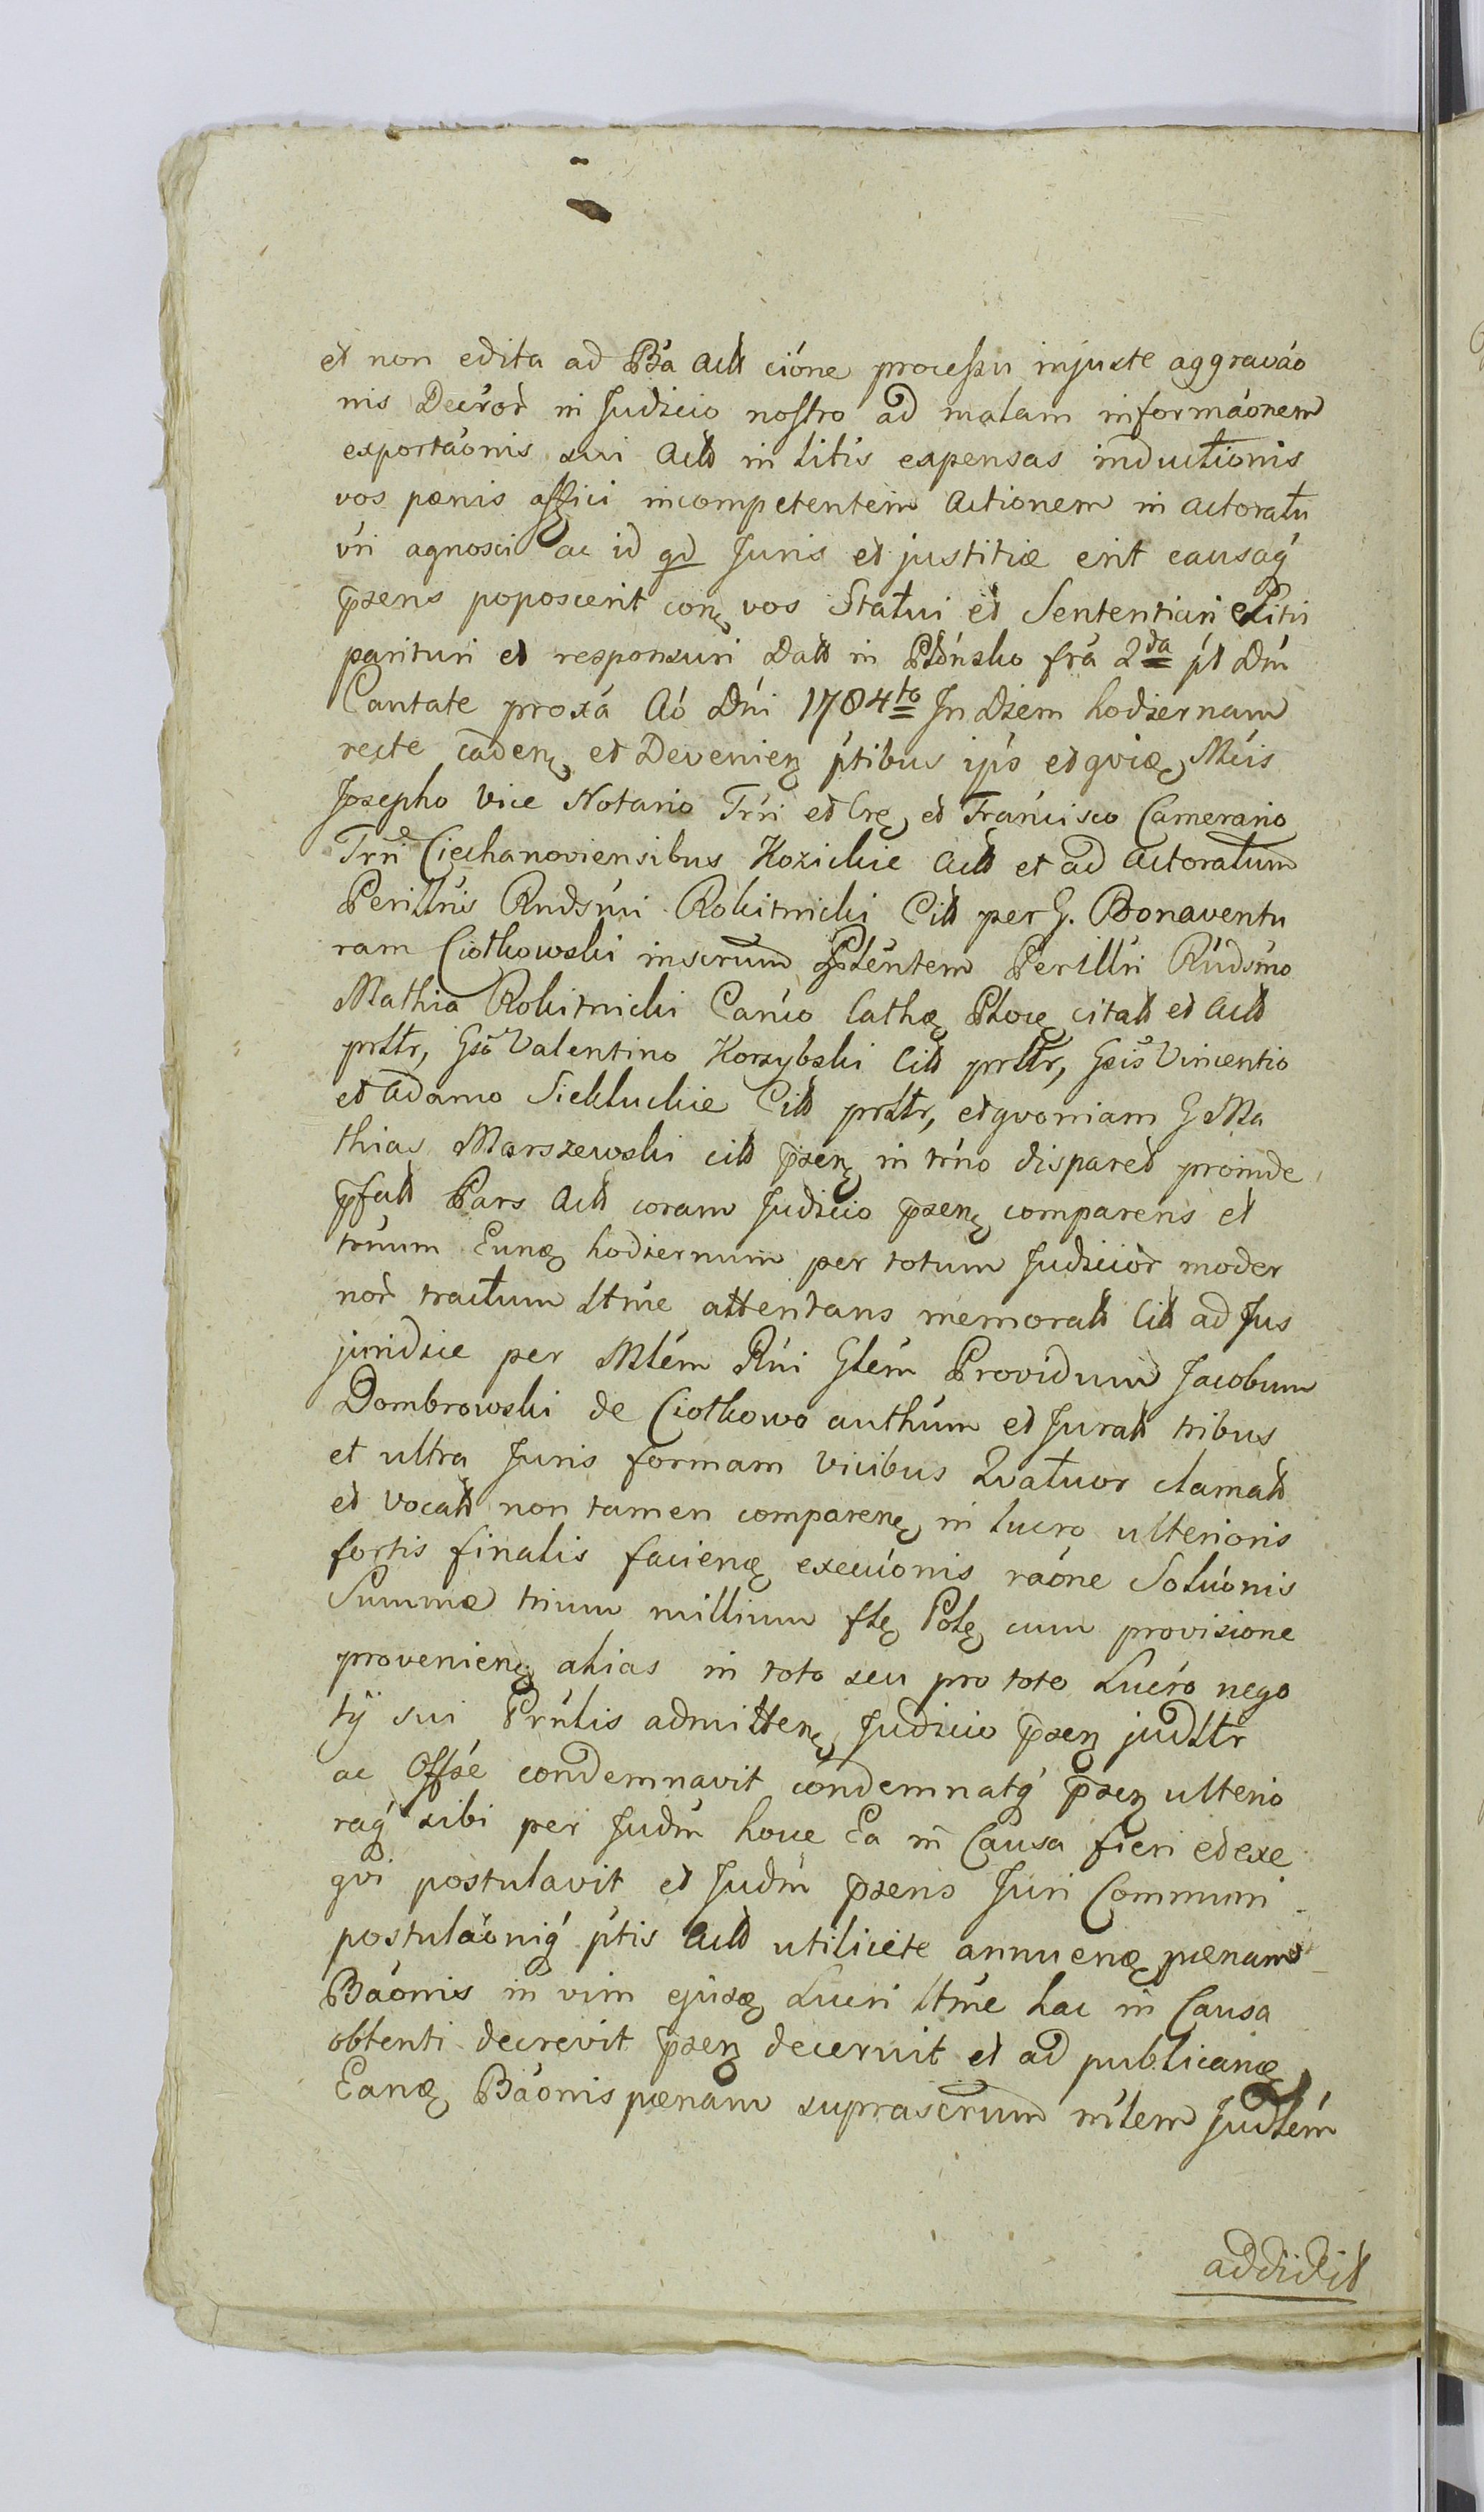 et non edita ad Ba Actt cióne processu injuste aggraváo
nis Decror in Judicio nostro ad malam informáonem
exportáonis sui Actt in litis expensas inductionis
vos pænis affici incompetentem Actionem in actoratu
vri agnosci ac id qd Juris et justitiæ erit causaq́
pŝens poposcerit conę vos Statui et Sententiari
parituri et responsuri Datt in Płónsko fra 2da pt Dm̃
Cantate proxá Aó Dńi 1784to In Diem hodiernam
recte cadenę et Devenienę ptibus ips et gvię Mcis
Josepho Vice Notario Trri et Crę et Francisco Camerario
Trri Ciechanoviensibus Kozickie Actt et ad Actoratum
Perillris Rndsmi Rokitnicki Citt per G. Bonaventu
ram Ciołkowski inscrum Plentem Perillri Rndsmo
Mathia Rokitnicki Canco Cathę Plocę citatt et Actt
prlltr, Gso Valentino Korzybski Citt prlltr, Gsis Vincentio
et Adamo Siekluckie Citt prlltr, et gvoniam G Ma
thias Marszewski citt pŝenę in trno disparet proinde
pfatt Pars Actt coram Judicio pŝenę comparens et
trnum Eunę hodiernum per totum Judicior moder
nor tractum ltme attentans memoratt Citt ad Jus
juridice per Mlem Rni Glem Providum Jacobum
Dombrowski de Ciołkowo authum et Juratt tribus
et ultra Juris formam vicibus Qvatuor clamatt
et vocatt non tamen comparenę in lucro ulterioris
fortis finalis facienę execúonis ráone Solúonis
Summæ trium millium flę Polę cum provisione
provenienę alias in toto seu pro toto Lucro nego
tÿ sui Prnlis admittenę Judicio pŝenę judlltr
ac Offse condemnavit condemnatq́ pŝenę ulterio
raq́ sibi per Judm hocce Ea in Causa fieri et exe
qvi postulavit et Judm pŝens Juri Communi
postuláoniq́ ptis Actt utilicite annuenę pænam
Báonis in vim ejusę Lucri ltme hac in Causa
obtenti decrevit pŝenę decernit et ad publicanę
Eanę Báonis pænam suprascrum mlem Judlem
addidit